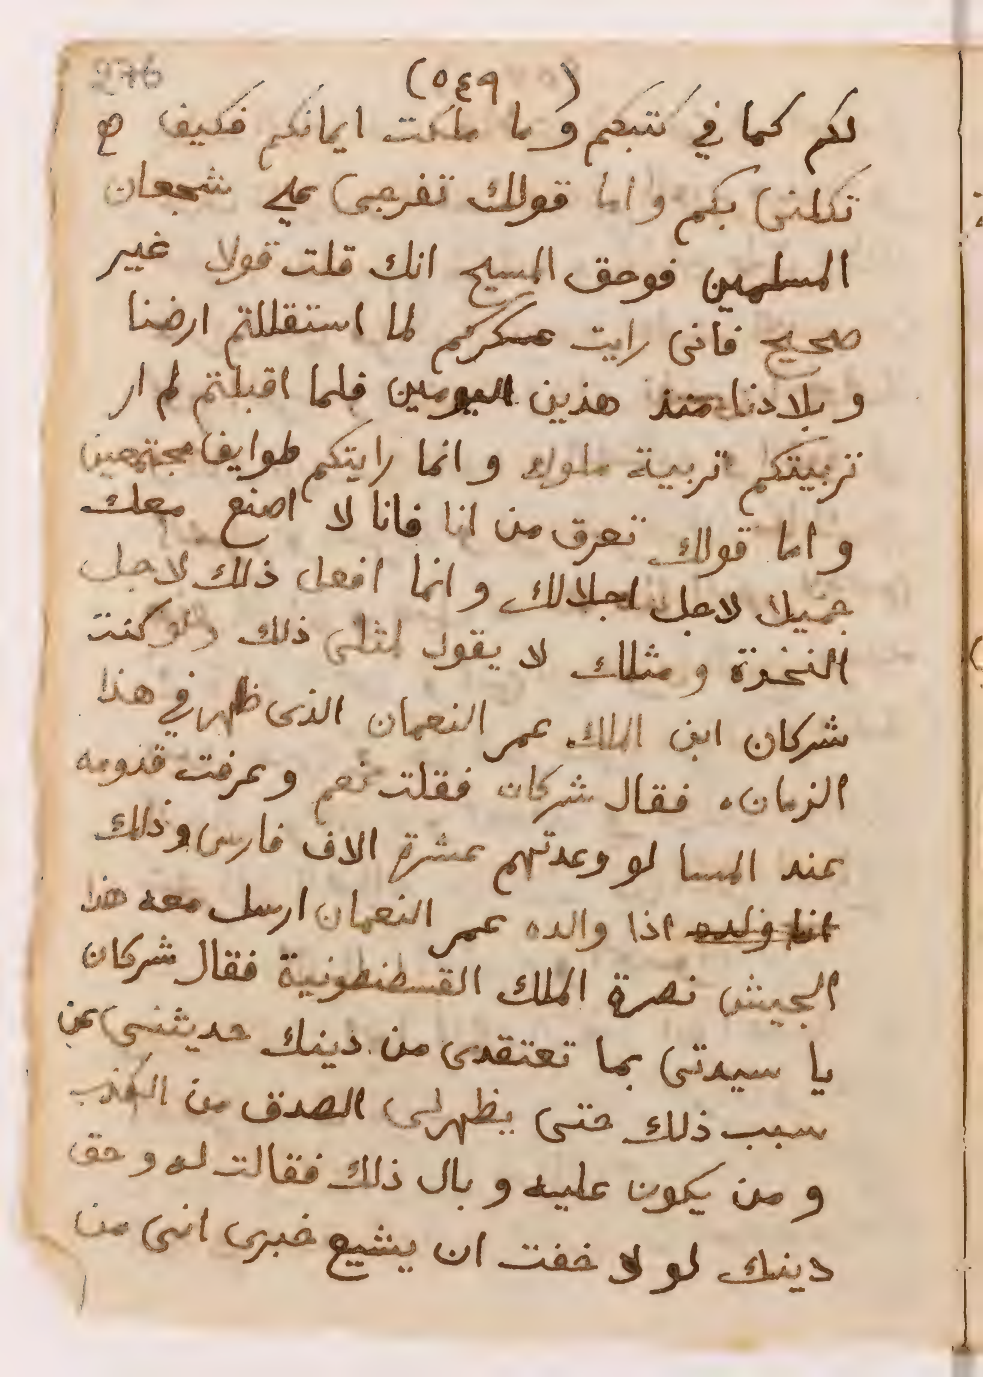 276
(٥٤٩)
لكم كما في كتبكم و ما ملكت ايمانكم فكيف
تكلمنى بكم واما قولك تفرجى على شجعان
المسلمين فوحق المسيح انك قلت قولا غير
صحيح فانى رايت عسكركم لما استقللتم ارضنا
و بلادنا منذ هذين اليومين فلما اقبلتم لم ار
تربيتكم تربية ملوك و انما رايتكم طوايف مجتمعين
و اما قولك تعرق من انا فانا لا اصنع معك
جميلا لاجل اجلالك و انما افعل ذلك لاجل
النخرة و مثلك لا يقول لمثلى ذلك ولو كنت
شركان ابن الملك عمر النعمان الذى ظهر في هذا
الزمان، فقال شركان فقلت نعم و عرفت قدومه
عند المسا لو وعدتهم عشرة الاف فارس وذلك
اذا والده عمر النعمان ارسل معه هذا
الجيش نصرة الملك القسطنطونية فقال شركان
يا سيدتى بما تعتقدى من دينك حديثنى عن
سبب ذلك حتى يظهر لى الصدق من الكذب
و من يكون عليه و بال ذلك فقالت له و حق
دينك لو لا خفت ان يشيع خبرى اننى من